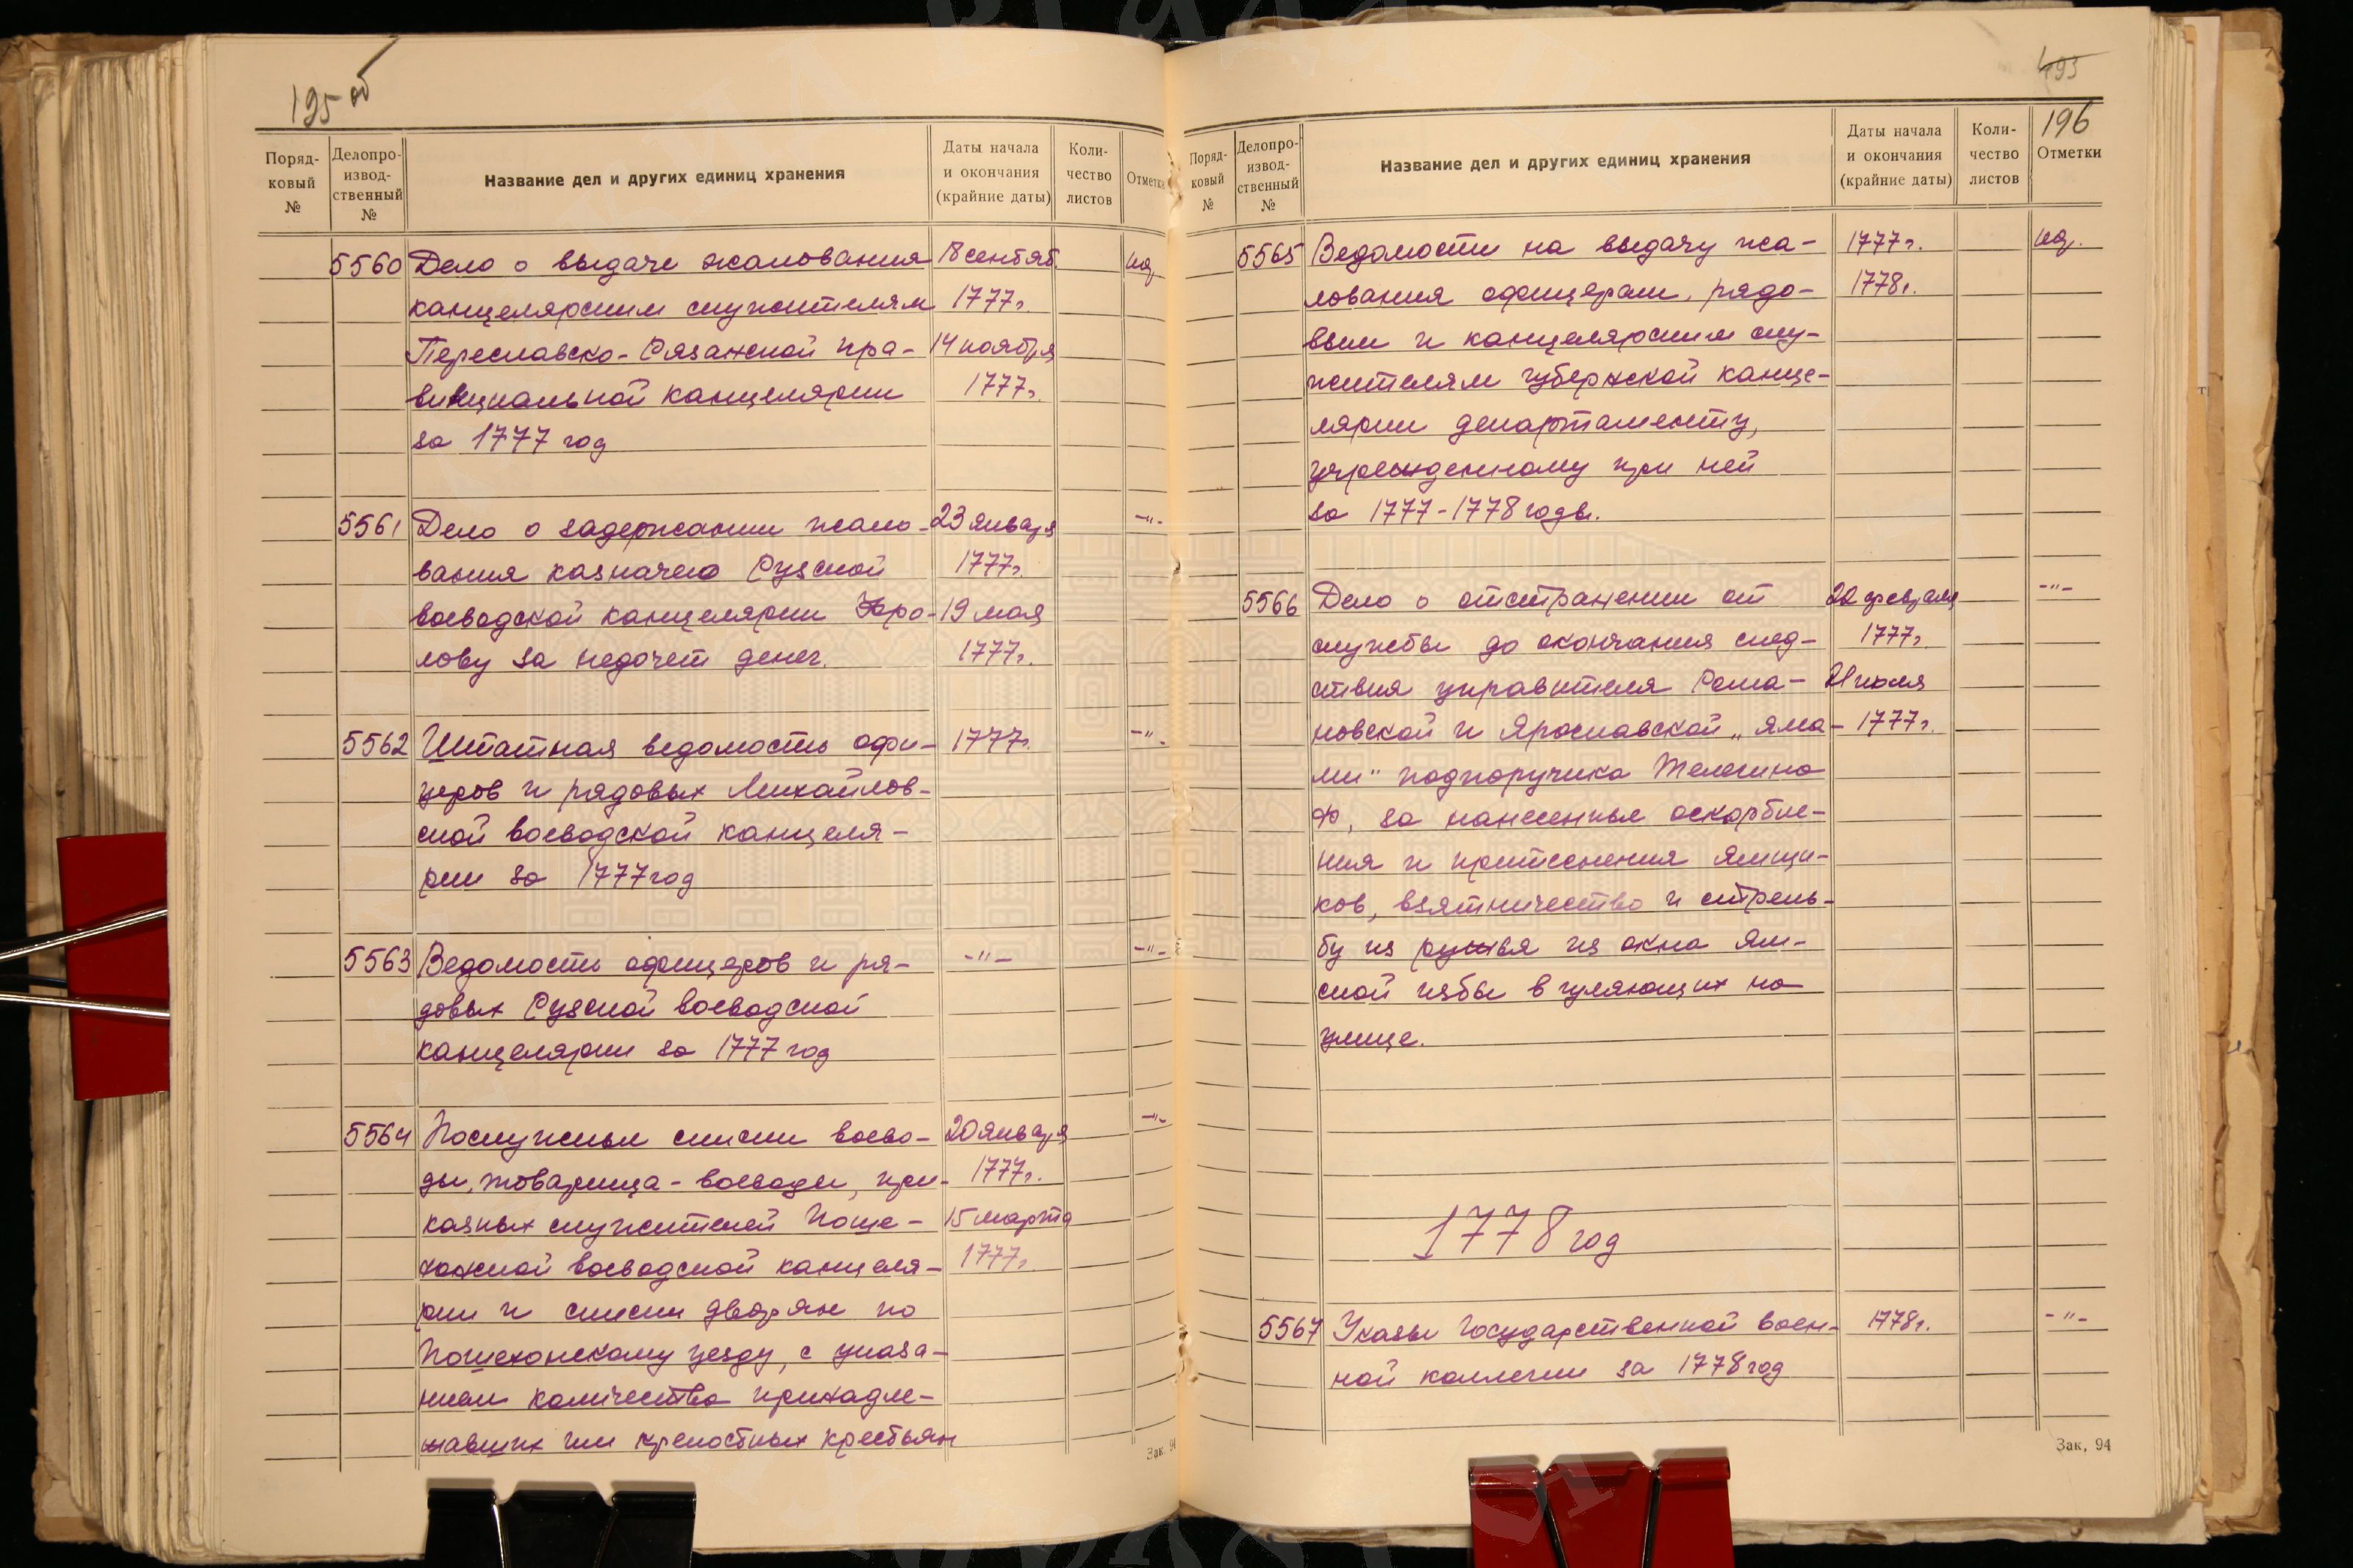 195 об
Поряд-
ковый
№
Делопро-
извод-
ственный
№
Название дел и других единиц хранения
Даты начала
и окончания
(крайние даты)
Коли-
чество
листов
Отметки
5560 Дело о выдаче жалования 18 сентяб.
канцелярским служителям 1777г.
Переславско-Рязанской про- 14 ноября
винциальной канцелярии 1777г.
за 1777 год
5561 Дело о задержании жало- 23 января -"-
вания казначею Рузской 1777г.
воеводской канцелярии 19 мая
лову за недочет денег. 1777г.
5562 Штатная ведомость офи- 1777г. -"-
церов и рядовых Михайлов-
ской воеводской канцеля-
рии за 1777 год
5563 Ведомость офицеров и ря- -"- -"-
довых Рузской воеводской
канцелярии за 1777 год
5564 Послужные списки воево- 20 января -"-
ды, товарища-воеводы, при- 1777г.
казных служителей Поше- 15 марта
хонской воеводской канцеля- 1777г.
рии и списки дворян по
Пошехонскому уезду, с указа-
нием количества принадле-
жавших им крепостных крестьян
Зак. 94
493
196
Поряд-
ковый
№
Делопро-
извод-
ственный
№
Название дел и других единиц хранения
Даты начала
и окончания
(крайние даты)
Коли-
чество
листов
Отметки
5565 Ведомости на выдачу жа- 1777г.
лования офицерам, рядо- 1778г.
вым и канцелярским слу-
жителям губернской канце-
лярии департаменту,
учрежденному при ней
за 1777-1778 годы.
5566 Дело о отстранении от 22 февраля -"-
службы до окончания след- 1777г.
ствия управителя Рома- 21 июля
новской и Ярославской „яма- 1777г.
ми" подпоручика Телегина
Ф, за нанесенные оскорбле-
ния и притеснения ямщи-
ков, взятничество и стрель-
бу из ружья из окна ям-
ской избы в гуляющих на
улице.
1778 год
5567 Указы Государственной воен- 1778г. -"-
ной коллегии за 1778 год
Зак, 94